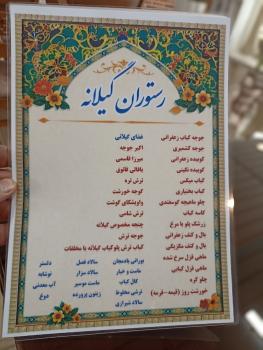 رستوران گیلانه
جوجه کباب زعفرانی
جوجه کشمیری
کوبیده زعفرانی
کوبیده نگینی
کباب میکس
کباب بختیاری
چلو ماهیچه گوسفندی
کاسه کباب
زرشک پلو با مرغ
بال و کتف زعفرانی
بال و کتف مکزیکی
ماهی قزل سرخ شده
ماهی قزل کبابی
چلو کره
خورشت روز (قیمه-قرمه)
غذای گیلانی
اکبر جوجه
میرزا قاسمی
باقالی قاتوق
ترش تره
گوجه خورشت
واویشکای گوشت
ترش شامی
چنجه مخصوص گیلانه
جوجه ترش
کباب ترش پلوکباب گیلانه با مخلفات
بورانی بادمجان
ماست و خیار
کال کباب
ترشی مخلوط
سالاد شیرازی
سالاد فصل
سالاد سزار
ماست موسیر
زیتون پرورده
دلستر
نوشابه
آب معدنی
دوغ